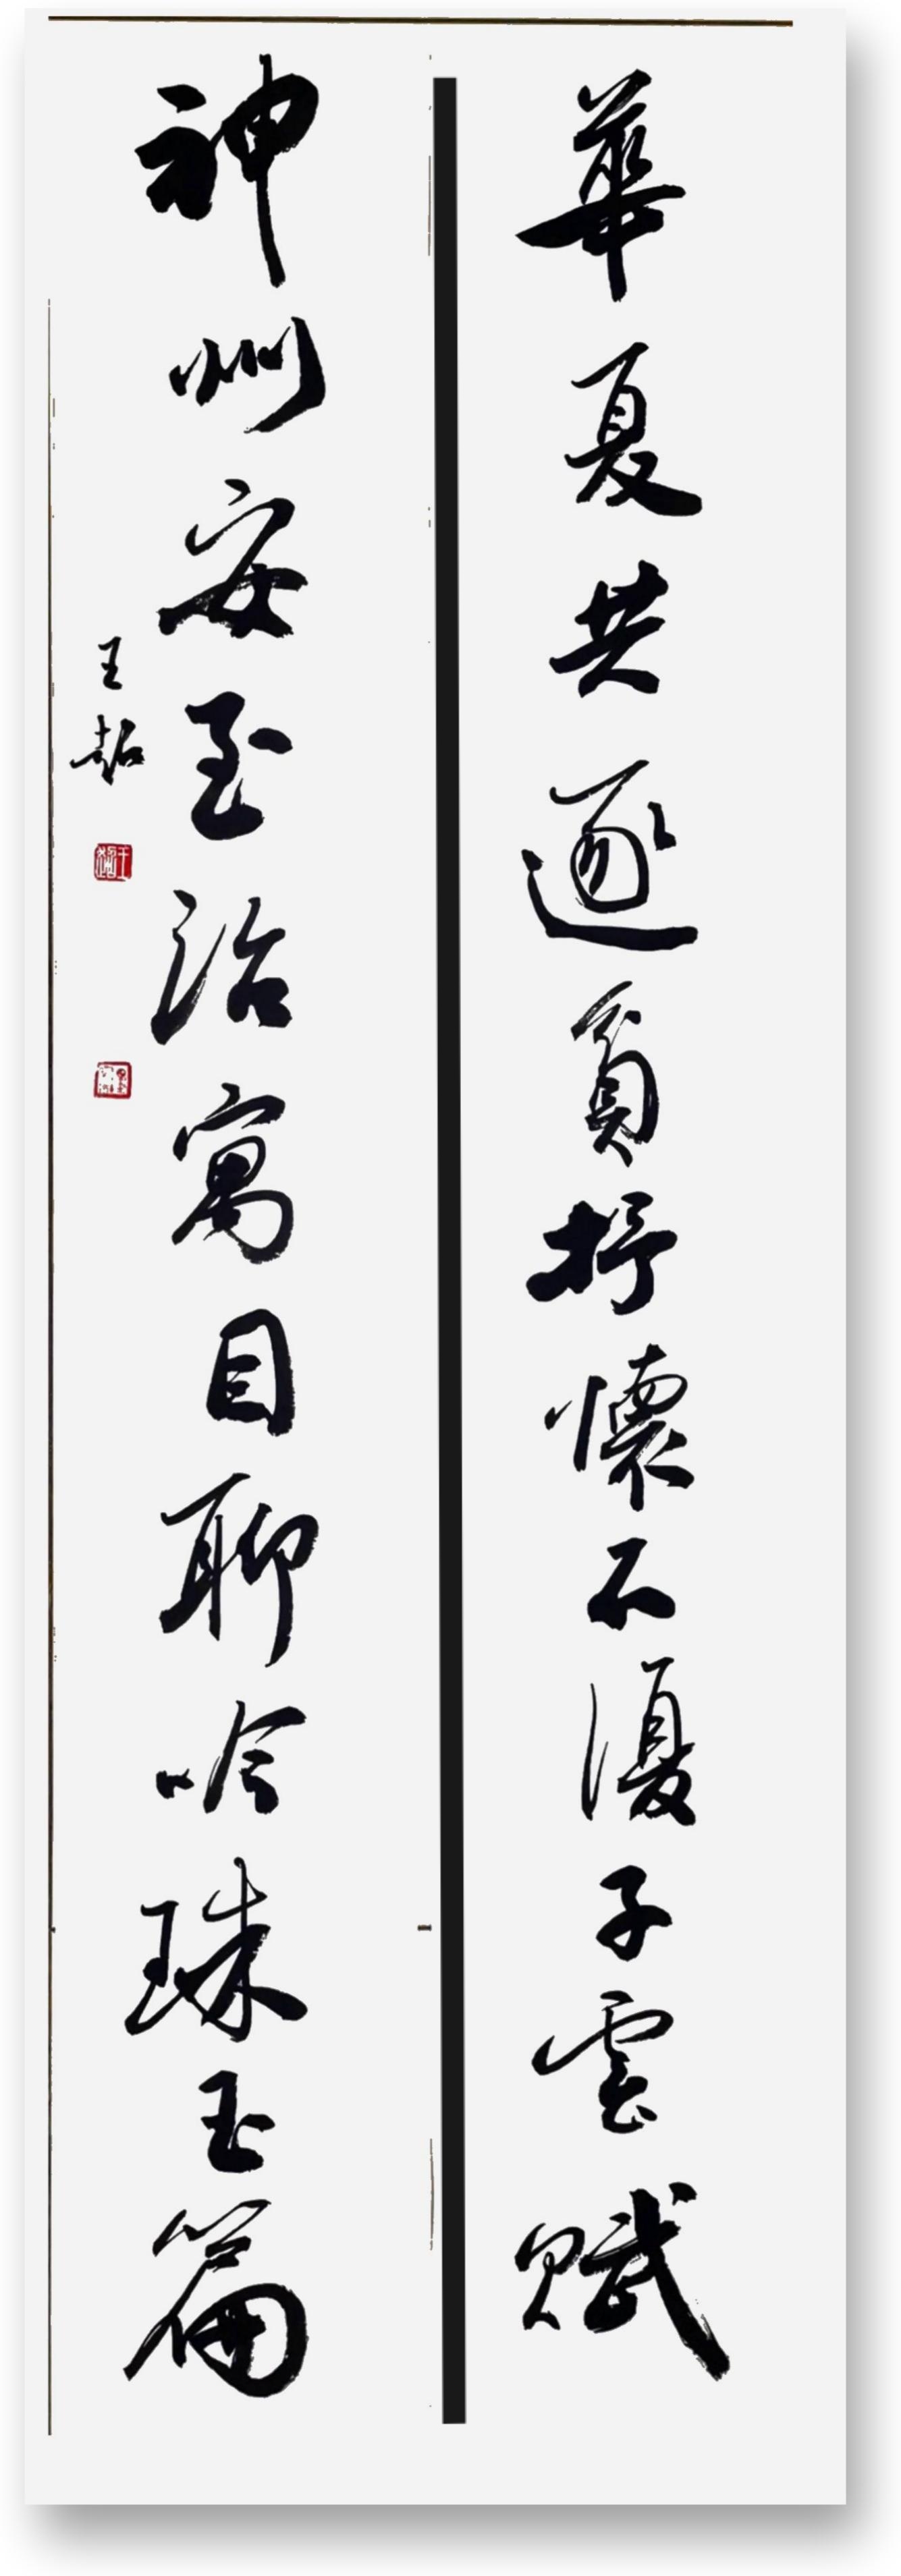 華夏共逐貧抒懷不復子雲賦
神州安至治寓目聊吟珠玉篇
王超